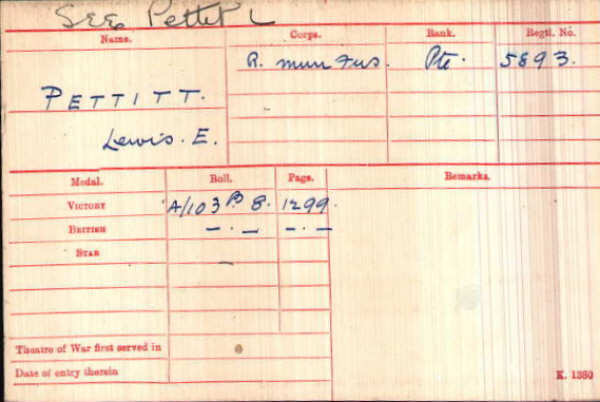 SEE Pettet L
Name. Corps. Rank. Regtl. No.
R. Mun Fus. Pte. 5893.
PETTITT.
Lewis. E.
Medal. Roll. Page. Remarks.
VICTORY A/103 B 8. 1299.
BRITISH — . — — . —
STAR —
Theatre of War first served in
Date of entry therein
K. 1380